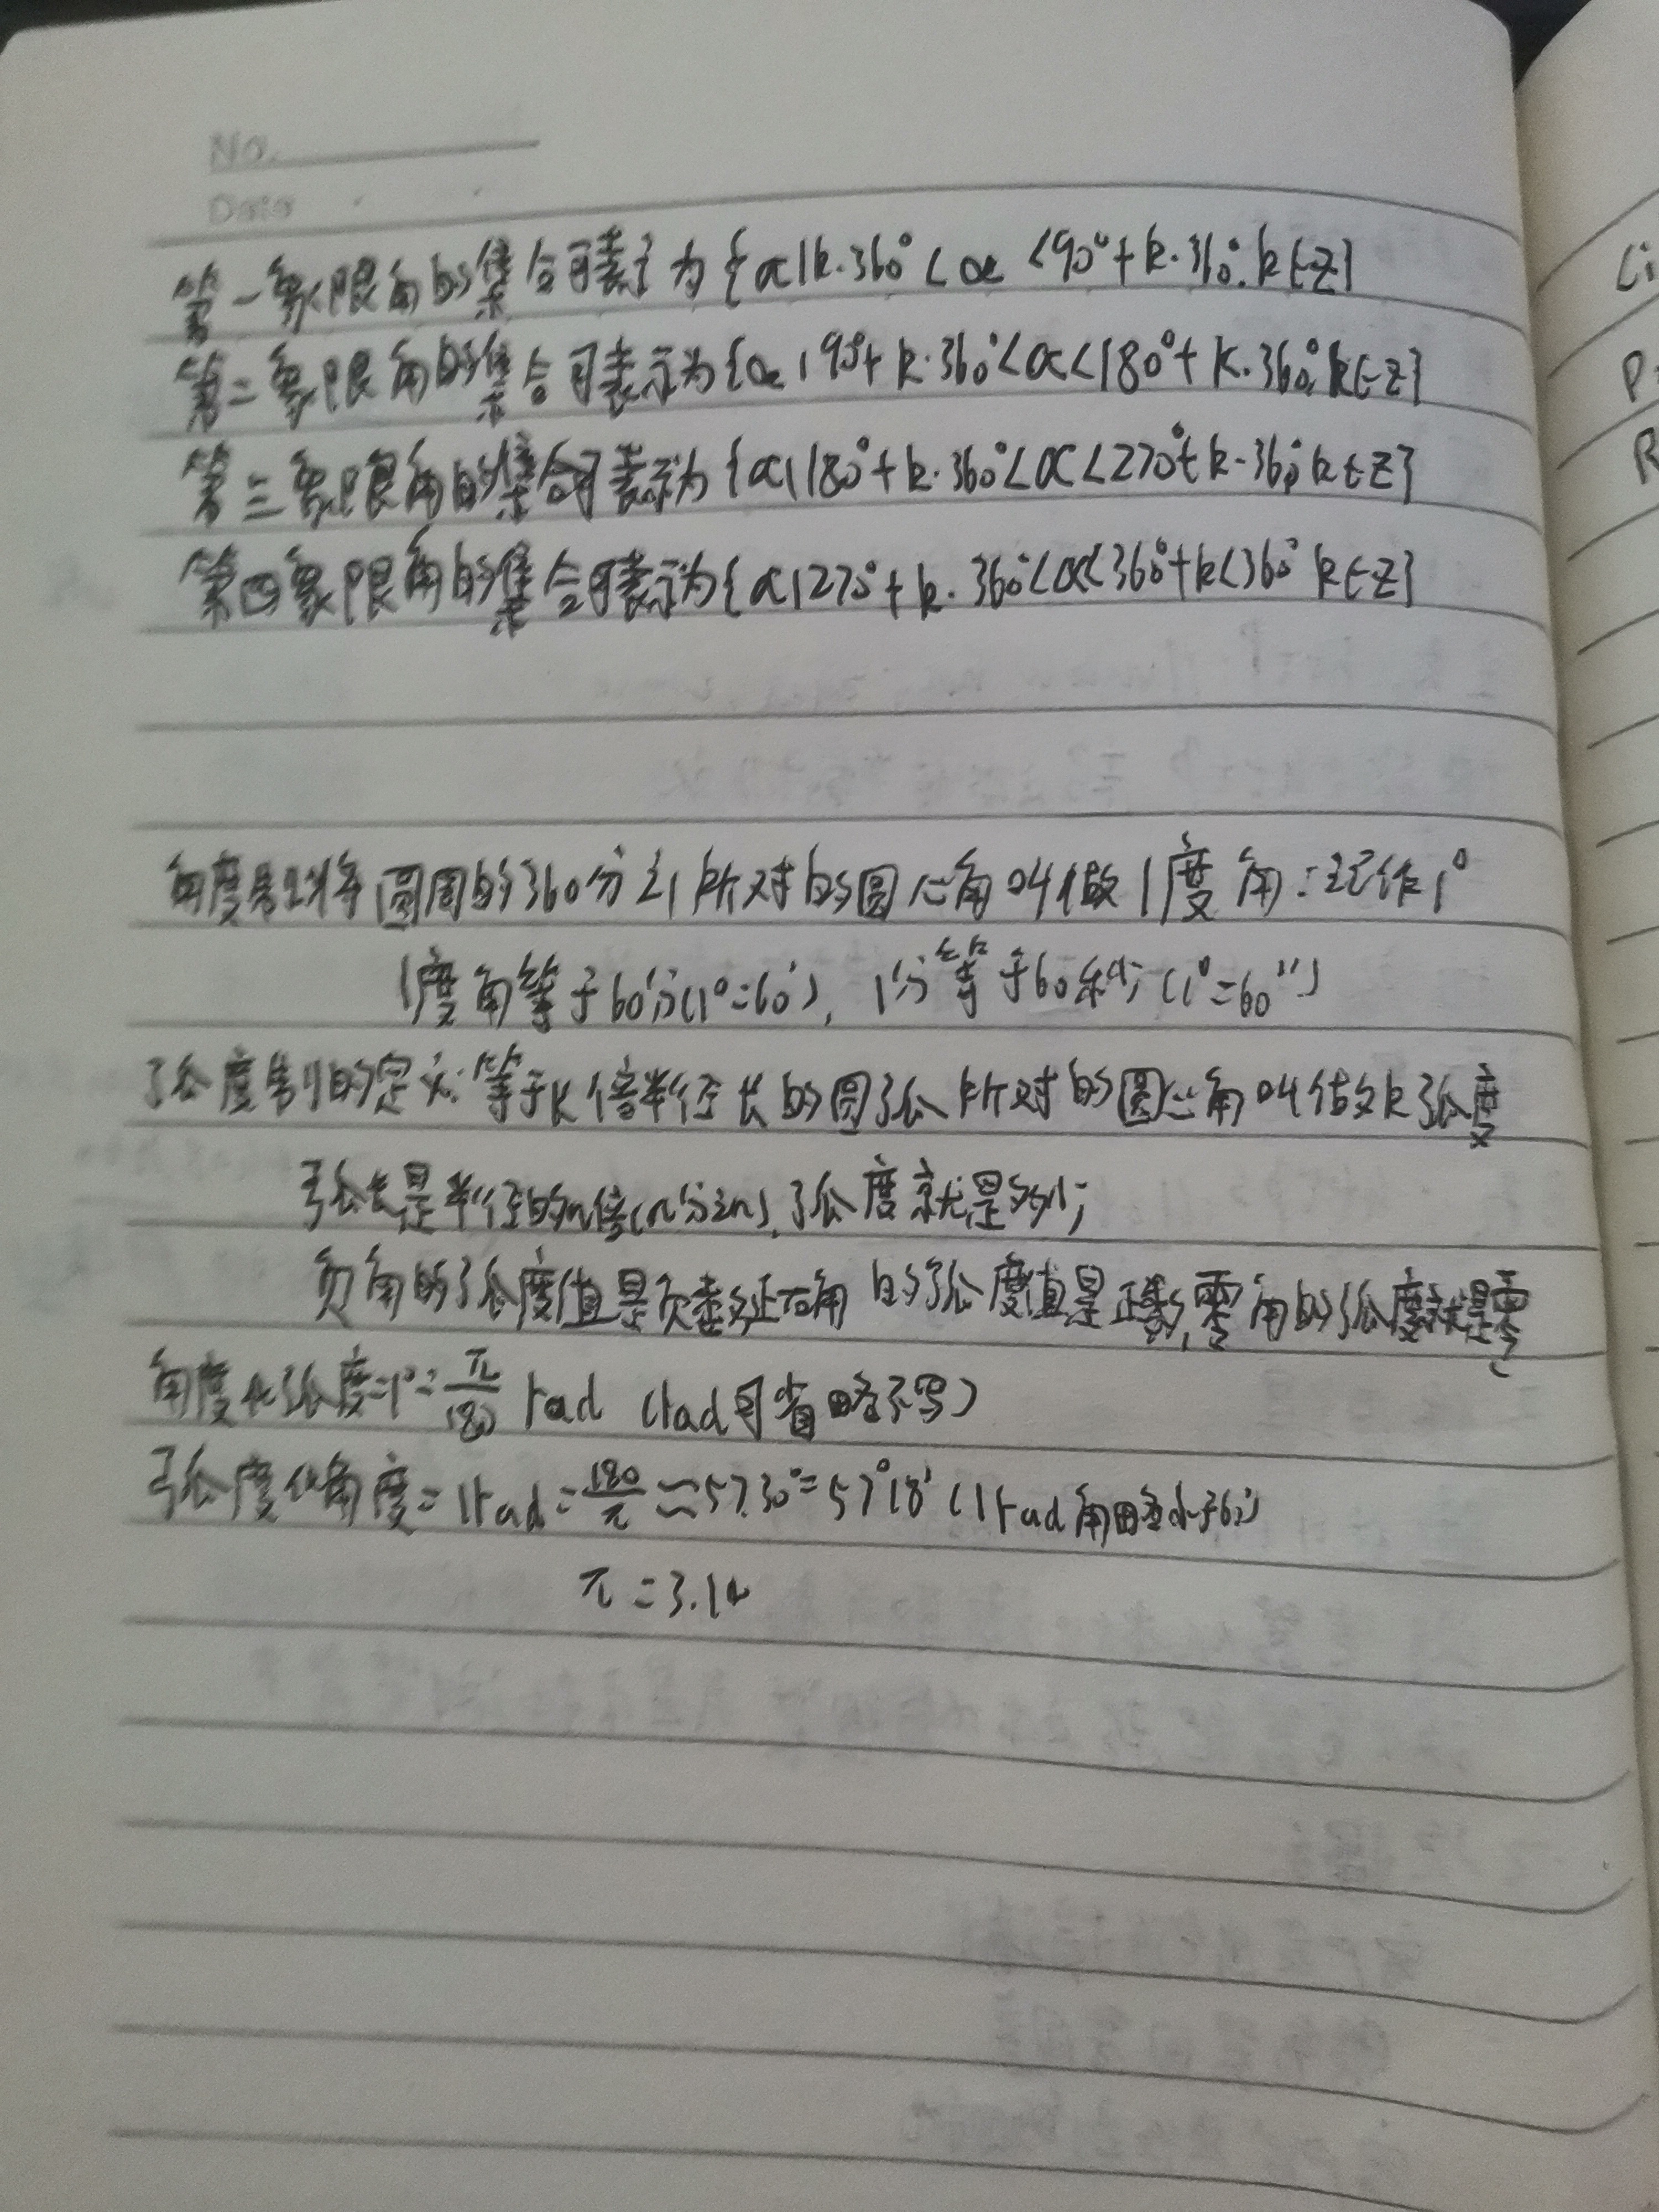 No.
Date
第一象限角的集合可表示为{α|k·360°<α<90°+k·360°,k∈Z}
第二象限角的集合可表示为{α|90°+k·360°<α<180°+k·360°,k∈Z}
第三象限角的集合可表示为{α|180°+k·360°<α<270°+k·360°,k∈Z}
第四象限角的集合可表示为{α|270°+k·360°<α<360°+k<360° k∈Z}
角度制:将圆周的360分之1所对的圆心角叫做1度角:记作1°
1度角等于60分(1°=60′),1分等于60秒;(1°=60″)
弧度制的定义:等于k倍半径长的圆弧所对的圆心角叫做k弧度
弧长是半径的n倍(n分之n),弧度就是多少;
负角的弧度值是负数,正角的弧度值是正数,零角的弧度就是零
角度化弧度=1°=π/180 rad (rad可省略不写)
弧度化角度=1rad=180/π≈57.30°=57°18′(1rad角略小于60°)
π=3.14